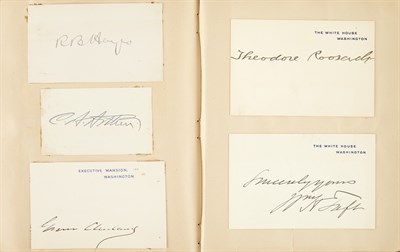 R B Hayes
C. A. Arthur
EXECUTIVE MANSION,
WASHINGTON.
Grover Cleveland
THE WHITE HOUSE
WASHINGTON
Theodore Roosevelt
THE WHITE HOUSE
WASHINGTON
Sincerely yours
Wm H Taft